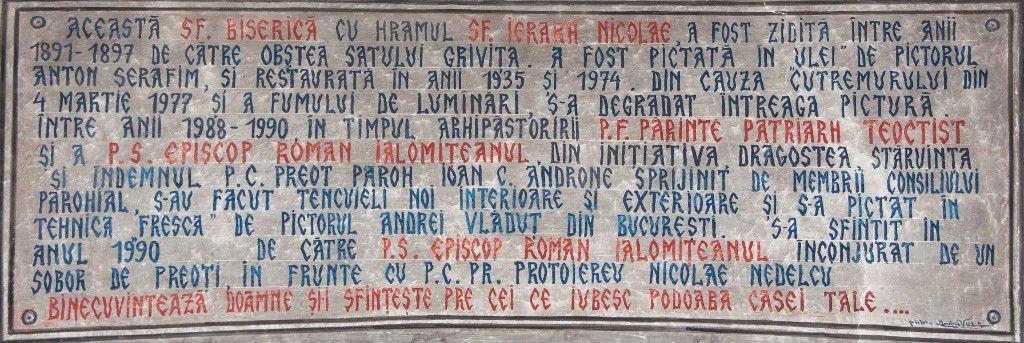 ACEASTĂ SF. BISERICĂ CU HRAMUL SF. IERARH NICOLAE, A FOST ZIDITĂ ÎNTRE ANII
1891-1897 DE CĂTRE OBȘTEA SATULUI GRIVIȚA. A FOST PICTATĂ ÎN "ULEI" DE PICTORUL
ANTON SERAFIM, ȘI RESTAURATĂ ÎN ANII 1935 ȘI 1974. DIN CAUZA CUTREMURULUI DIN
4 MARTIE 1977, ȘI A FUMULUI DE LUMÎNĂRI, S-A DEGRADAT ÎNTREAGA PICTURĂ.
ÎNTRE ANII 1988-1990, ÎN TIMPUL ARHIPĂSTORIRII P.F. PĂRINTE PATRIARH TEOCTIST
ȘI A P.S. EPISCOP ROMAN IALOMIȚEANUL, DIN INIȚIATIVA, DRAGOSTEA, STĂRUINȚA
ȘI ÎNDEMNUL P.C. PREOT PAROH IOAN C. ANDRONE SPRIJINIT DE MEMBRII CONSILIULUI
PAROHIAL, S-AU FĂCUT TENCUIELI NOI INTERIOARE ȘI EXTERIOARE ȘI S-A PICTAT ÎN
TEHNICA "FRESCA" DE PICTORUL ANDREI VLĂDUȚ DIN BUCUREȘTI. S-A SFINȚIT ÎN
ANUL 1990 DE CĂTRE P.S. EPISCOP ROMAN IALOMIȚEANUL ÎNCONJURAT DE UN
SOBOR DE PREOȚI, ÎN FRUNTE CU P.C. PR. PROTOIEREU NICOLAE NEDELCU
BINECUVINTEAZĂ DOAMNE ȘII SFINȚEȘTE PRE CEI CE IUBESC PODOABA CASEI TALE....